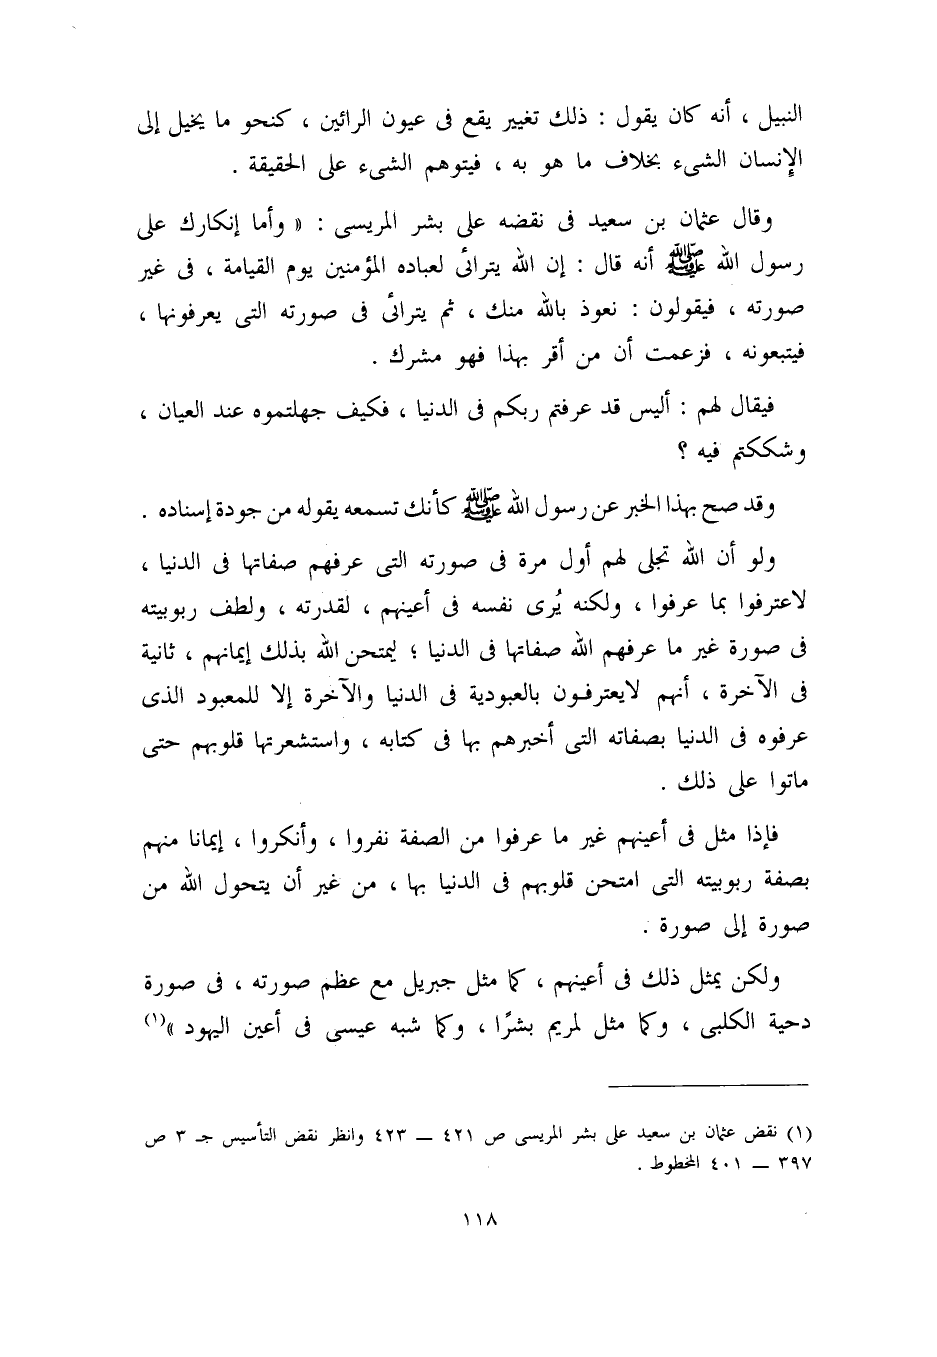 النبيل ، أنه كان يقول : ذلك تغيير يقع فى عيون الرائين ، كنحو ما يخيل إلى
الإنسان الشىء بخلاف ما هو به ، فيتوهم الشىء على الحقيقة .
وقال عثمان بن سعيد فى نقضه على بشر المريسى : « وأما إنكارك على
رسول الله ﷺ أنه قال : إن الله يتراءى لعباده المؤمنين يوم القيامة ، فى غير
صورته ، فيقولون : نعوذ بالله منك ، ثم يتراءى فى صورته التى يعرفونها ،
فيتبعونه ، فزعمت أن من أقر بهذا فهو مشرك .
فيقال لهم : أليس قد عرفتم ربكم فى الدنيا ، فكيف جهلتموه عند العيان ،
وشككتم فيه ؟
وقد صح بهذا الخبر عن رسول الله ﷺ كأنك تسمعه يقوله من جودة إسناده .
ولو أن الله تجلى لهم أول مرة فى صورته التى عرفهم صفاتها فى الدنيا ،
لاعترفوا بما عرفوا ، ولكنه يُرى نفسه فى أعينهم ، لقدرته ، ولطف ربوبيته
فى صورة غير ما عرفهم الله صفاتها فى الدنيا ؛ ليمتحن الله بذلك إيمانهم ، ثانية
فى الآخرة ، أنهم لايعترفون بالعبودية فى الدنيا والآخرة إلا للمعبود الذى
عرفوه فى الدنيا بصفاته التى أخبرهم بها فى كتابه ، واستشعرتها قلوبهم حتى
ماتوا على ذلك .
فإذا مثل فى أعينهم غير ما عرفوا من الصفة نفروا ، وأنكروا ، إيمانا منهم
بصفة ربوبيته التى امتحن قلوبهم فى الدنيا بها ، من غير أن يتحول الله من
صورة إلى صورة .
ولكن يمثل ذلك فى أعينهم ، كما مثل جبريل مع عظم صورته ، فى صورة
دحية الكلبى ، وكما مثل لمريم بشرًا ، وكما شبه عيسى فى أعين اليهود »(١)
(١) نقض عثمان بن سعيد على بشر المريسى ص ٤٢١ ــ ٤٢٣ وانظر نقض التأسيس جـ ٣ ص
٣٩٧ ــ ٤٠١ المخطوط .
١١٨